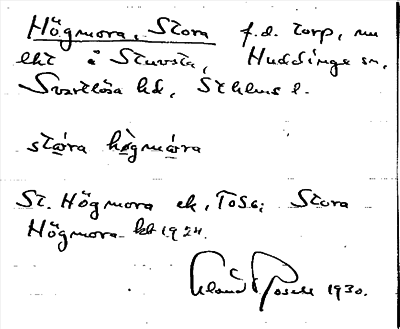 Högmora, Stora f.d. torp, nu
lht å Stuvsta, Huddinge sn,
Svartlösa hd, Sthlms l.
stɷ̄ra hògmɷ̄ra
St. Högmora ek, TOSB; Stora
Högmora kbt 1924.
1930.